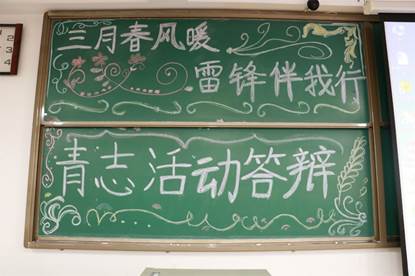 三月春风暖
雷锋伴我行
青志活动答辩